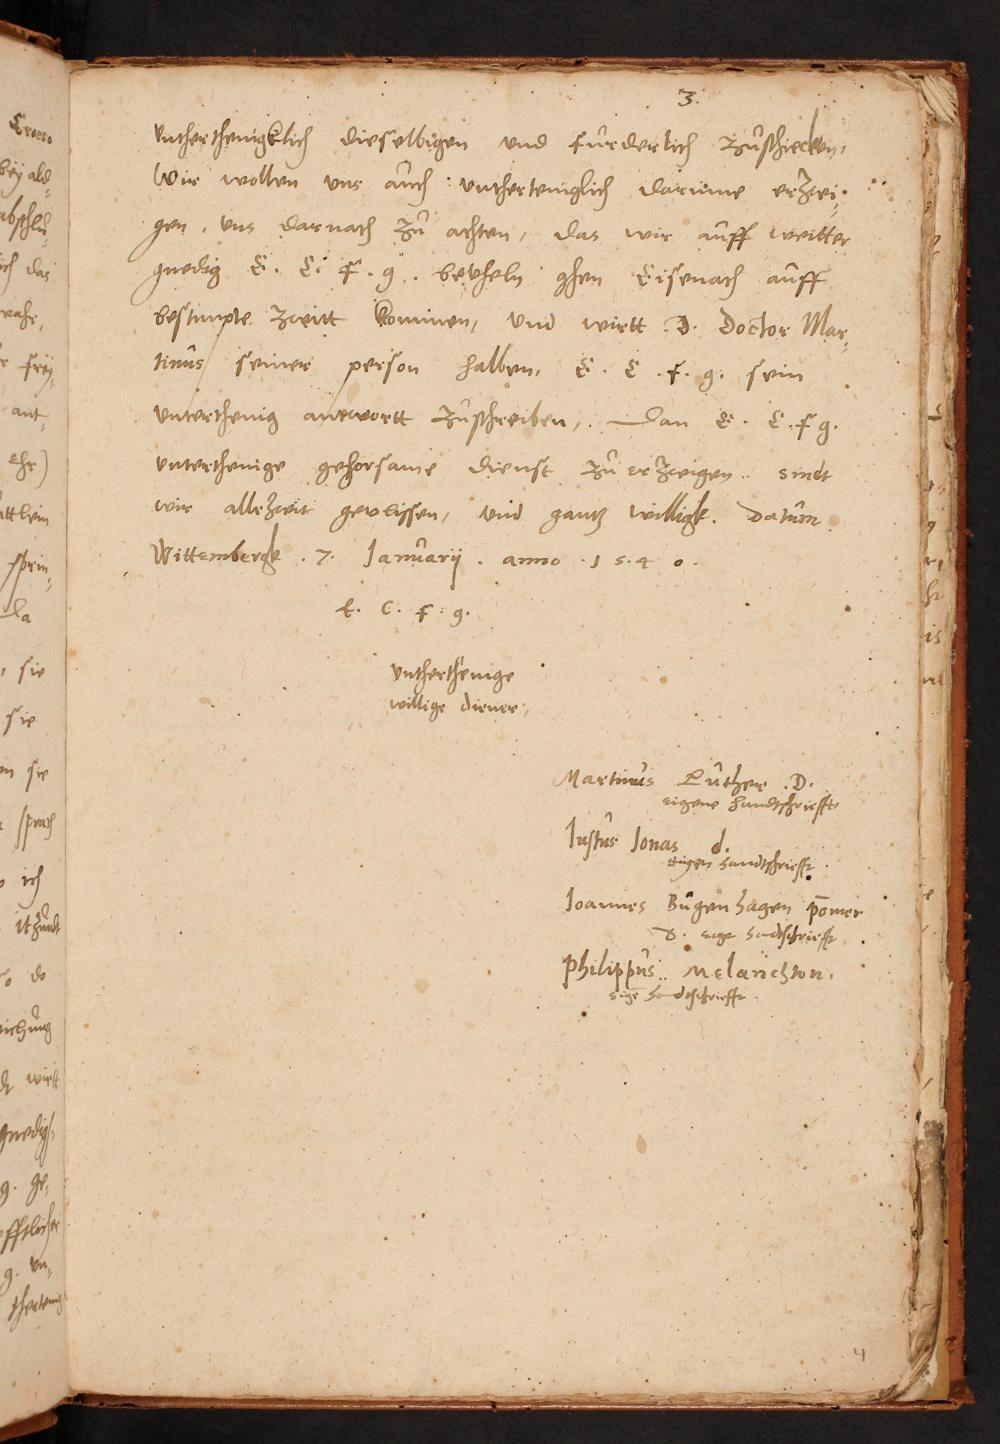 3.
untherthenigklich dieselbigen und furderlich zuschicken,
Wir wollen uns auch untherteniglich darinne erzei-
gen, uns darnach zu achten, das wir auff weitter
gnedig E. C. F. g. bevheln ghen Eisenach auff
bestimpte zeitt kommen, Und wirtt D. Doctor Mar-
tinus seiner person halben, E. C. F. g. sein
unterthenig antwortt zuschreiben, Dan E. C. F g.
unterthenige gehorsame dienst zu erzeigen sindt
wir allezeit gevlissen, und gantz willigk. Datum
Wittembergk . 7. Januarij . anno . 1 5. 4 0.
E. C. F. g.
untherthenige
willige diener,
Martinus Luther .D.
eigene handtschriefft
Justus Jonas d.
eigen handtschriefft
Joannes Bugenhagen pomer
D. eige handtschriefft
Philippus Melanchton.
eige handtschriefft.
4